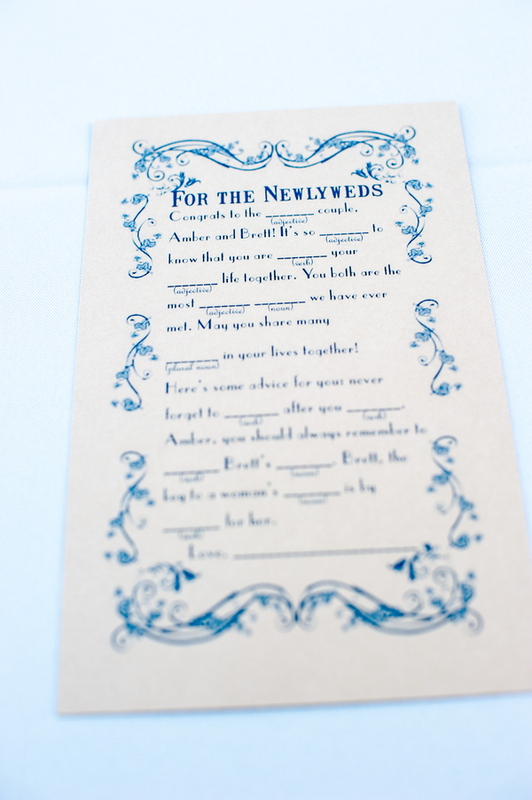 FOR THE NEWLYWEDS
Congrats to the ______ couple,
(adjective)
Amber and Brett! It's so ______ to
(adjective)
know that you are ______ your
(verb)
______ life together. You both are the
(adjective)
most ______ ______ we have ever
(adjective) (noun)
met. May you share many
______ in your lives together!
(plural noun)
Here's some advice for you: never
forget to ______ after you ______.
(verb) (verb)
Amber, you should always remember to
______ Brett's ______. Brett, the
(verb) (noun)
key to a woman's ______ is by
(noun)
______ for her.
(verb)
Love, ______________________